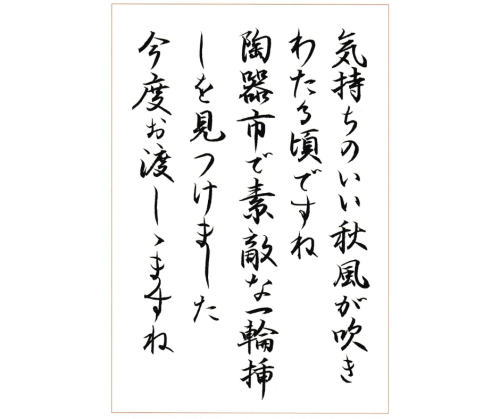 気持ちのいい秋風が吹き
わたる頃ですね
陶器市で素敵な一輪挿
しを見つけました
今度お渡ししますね